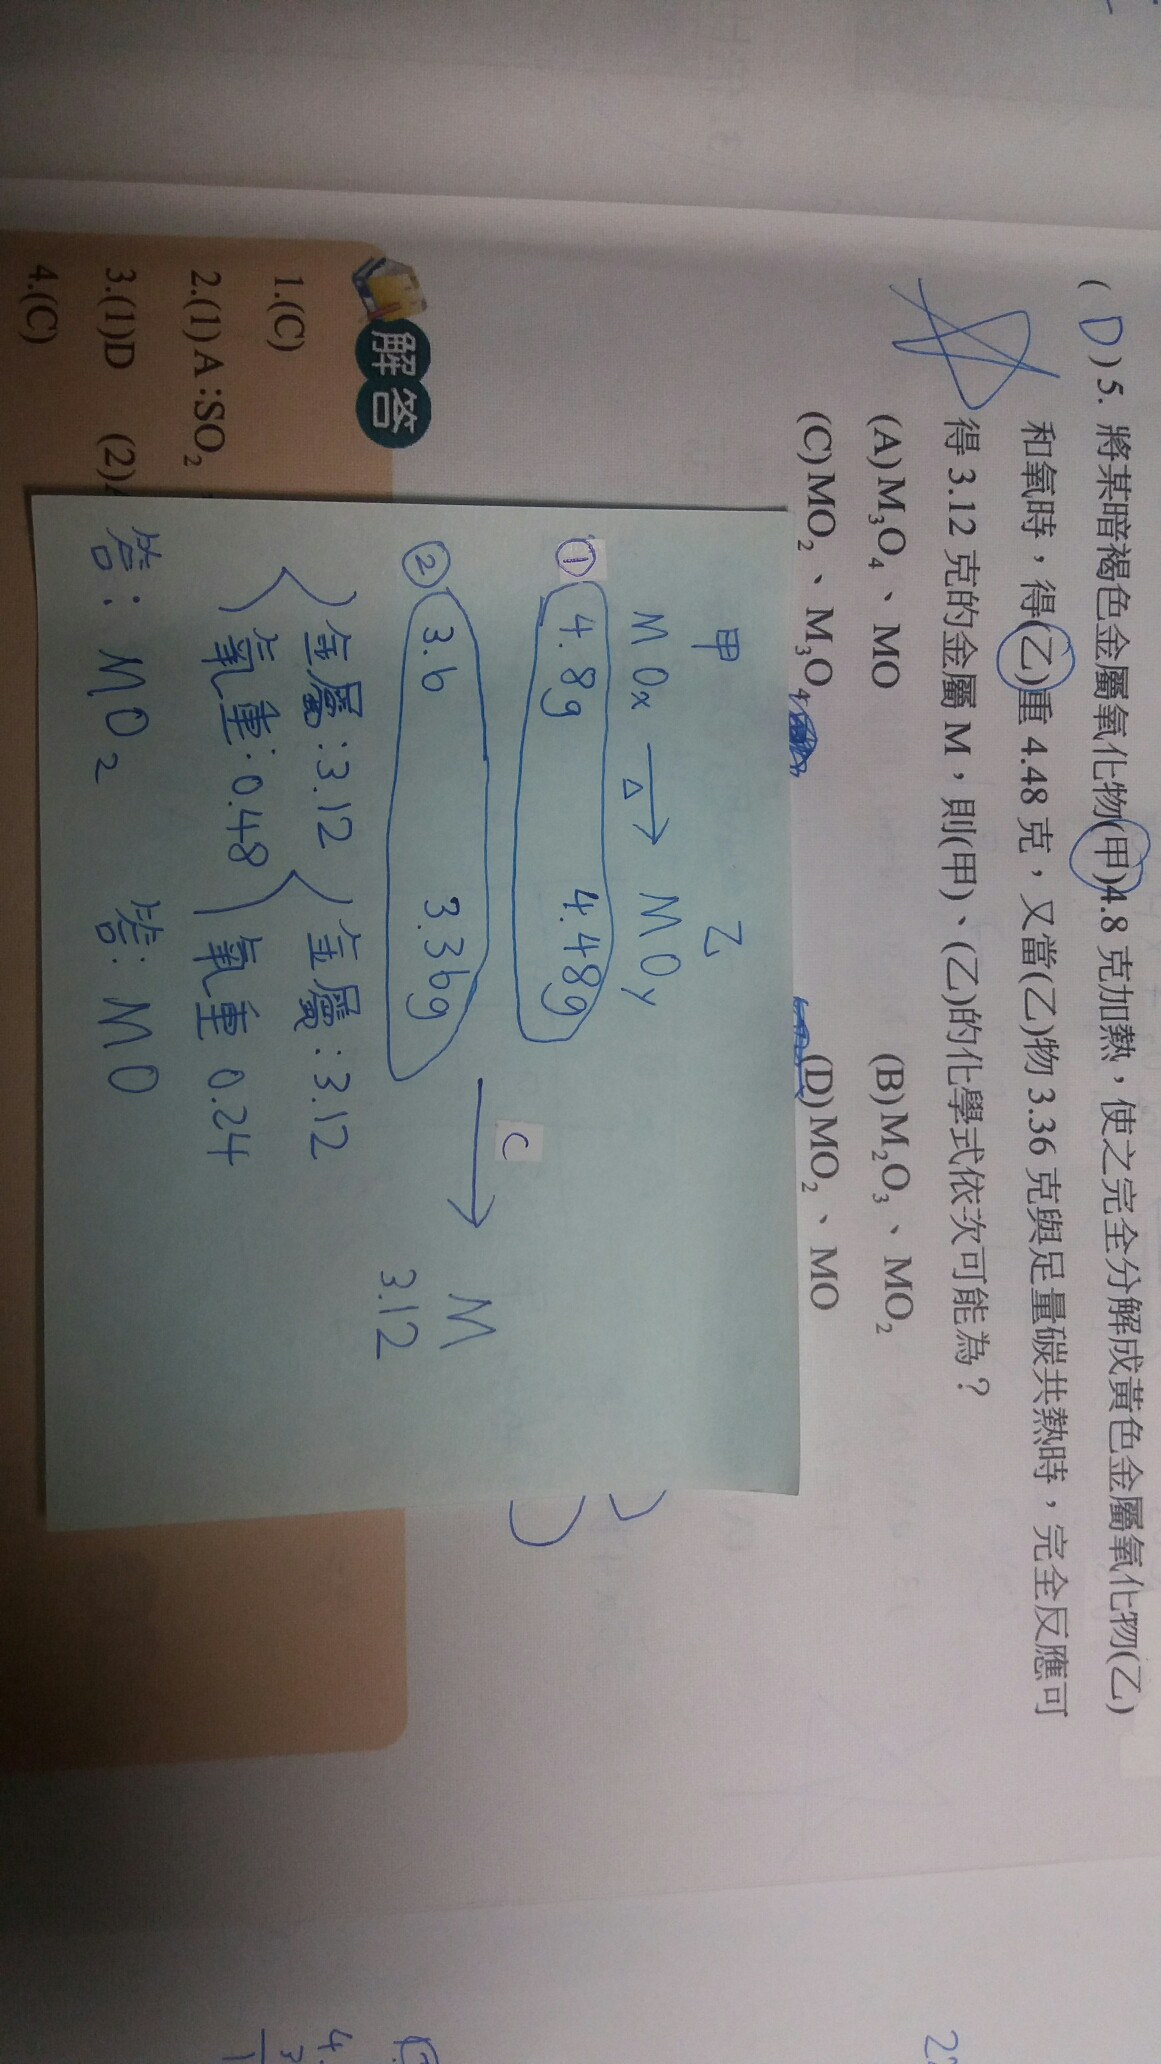 ( D ) 5. 將某暗褐色金屬氧化物(甲)4.8 克加熱，使之完全分解成黃色金屬氧化物(乙)
和氧時，得(乙)重 4.48 克，又當(乙)物 3.36 克與足量碳共熱時，完全反應可
得 3.12 克的金屬 M，則(甲)、(乙)的化學式依次可能為？
(A)M₃O₄、MO (B)M₂O₃、MO₂
(C)MO₂、M₃O₄ (D)MO₂、MO
甲 乙
MOx →Δ MOy
① 4.8g 4.48g
② 3.6 3.36g →C M 3.12
金屬:3.12 金屬:3.12
氧重:0.48 氧重 0.24
答: MO₂ 答: MO
解答
1.(C)
2.(1)A:SO₂
3.(1)D (2)
4.(C)